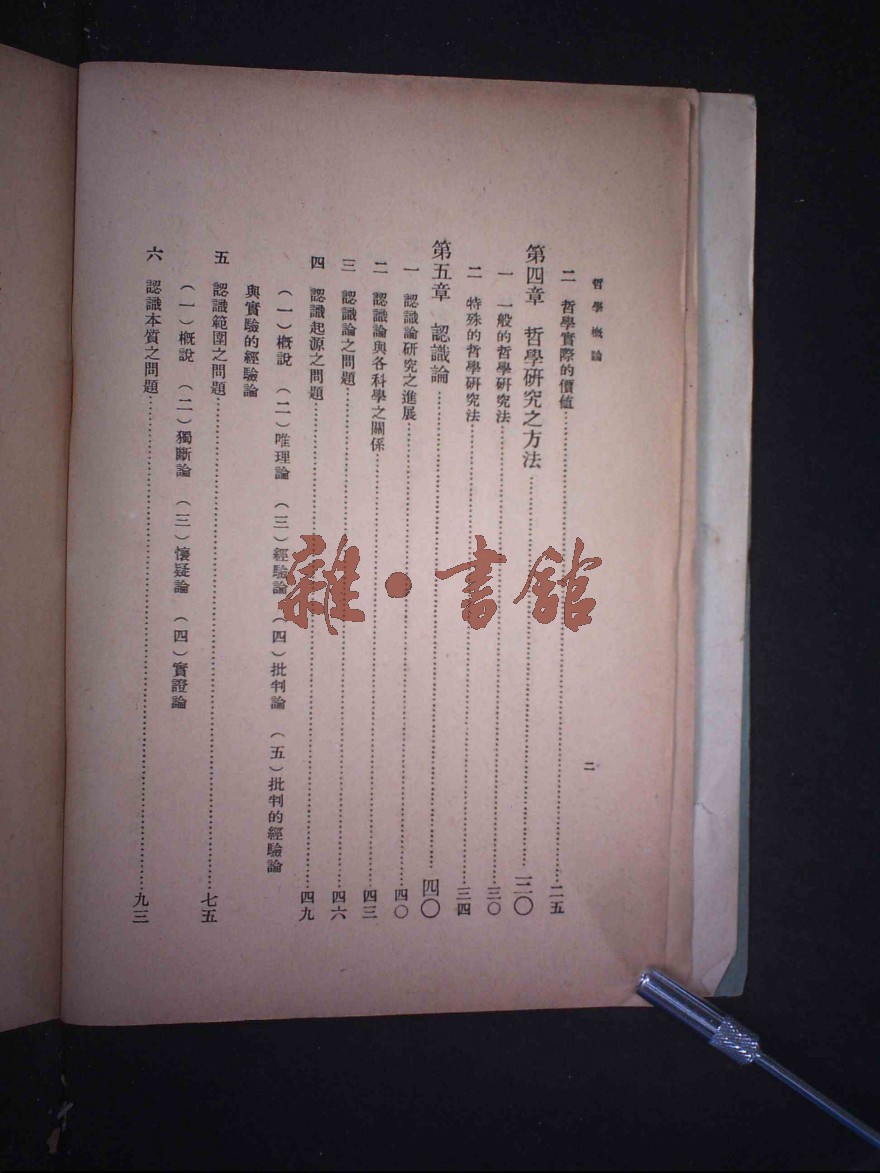 哲學概論
二
二 哲學實際的價值……二五
第四章 哲學研究之方法……三〇
一 一般的哲學研究法……三〇
二 特殊的哲學研究法……三四
第五章 認識論……四〇
一 認識論研究之進展……四〇
二 認識論與各科學之關係……四三
三 認識論之問題……四六
四 認識起源之問題……四九
(一)概說 (二)唯理論 (三)經驗論 (四)批判論 (五)批判的經驗論
與實驗的經驗論
五 認識範圍之問題……七五
(一)概說 (二)獨斷論 (三)懷疑論 (四)實證論
六 認識本質之問題……九三
雜·書館